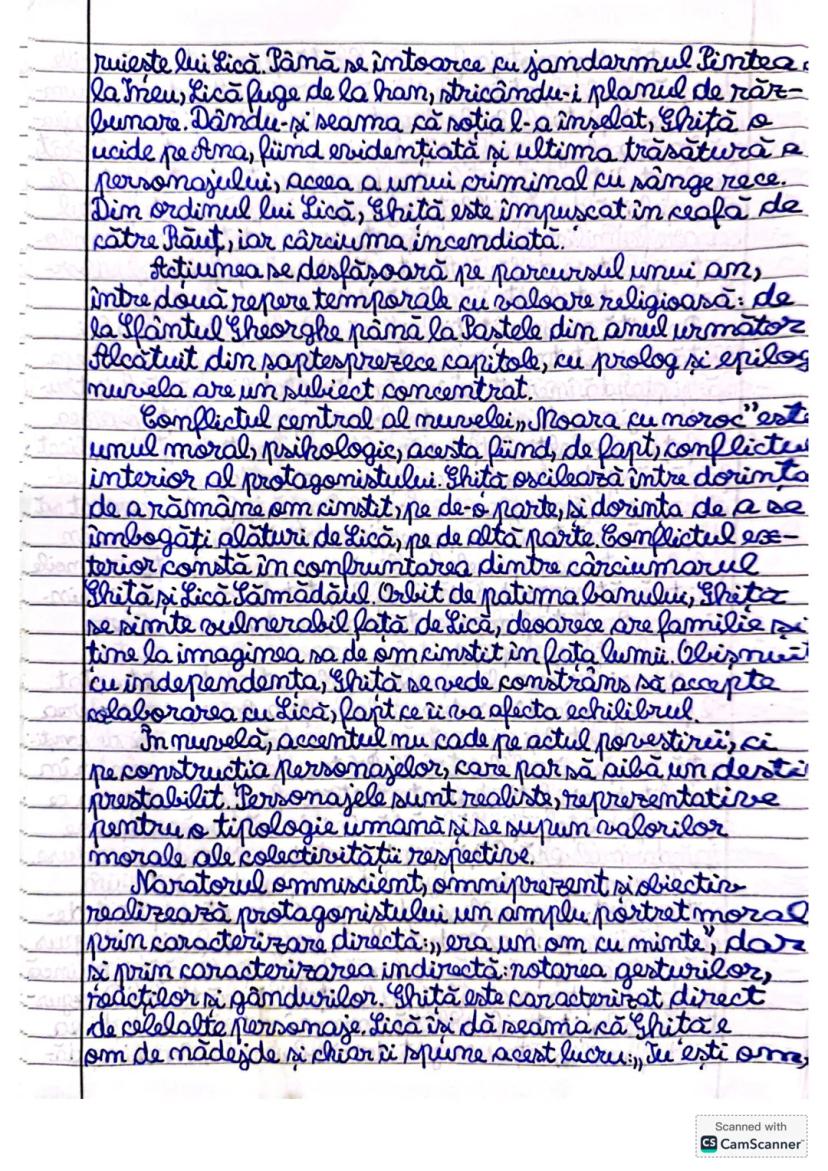 ruiește lui Lică. Până se întoarce cu jandarmul Pintea
la Ineu, Lică fuge de la han, stricându-i planul de răz-
bunare. Dându-și seama că soția l-a înșelat, Ghiță o
ucide pe Ana, fiind evidențiată și ultima trăsătură a
personajului, aceea a unui criminal cu sânge rece.
Din ordinul lui Lică, Ghiță este împușcat în ceafă de
către Răuț, iar cârciuma incendiată.
Acțiunea se desfășoară pe parcursul unui an,
între două repere temporale cu valoare religioasă: de
la Sfântul Gheorghe până la Paștele din anul următor
Alcătuit din șaptesprezece capitole, cu prolog și epilog
nuvela are un subiect concentrat.
Conflictul central al nuvelei „Moara cu noroc" este
unul moral, psihologic, acesta fiind, de fapt, conflictu
interior al protagonistului. Ghiță oscilează între dorința
de a rămâne om cinstit, pe de-o parte, și dorința de a se
îmbogăți alături de Lică, pe de altă parte. Conflictul ex-
terior constă în confruntarea dintre cârciumarul
Ghiță și Lică Sămădăul. Orbit de patima banului, Ghiță
se simte vulnerabil față de Lică, deoarece are familie și
ține la imaginea sa de om cinstit în fața lumii. Obișnuit
cu independența, Ghiță se vede constrâns să accepte
colaborarea cu Lică, fapt ce îi va afecta echilibrul.
În nuvelă, accentul nu cade pe actul povestirii, ci
pe construcția personajelor, care par să aibă un desti
prestabilit. Personajele sunt realiste, reprezentative
pentru o tipologie umană și se supun valorilor
morale ale colectivității respective.
Naratorul omniscient, omniprezent și obiectiv
realizează protagonistului un amplu portret moral
prin caracterizare directă: „era un om cu minte", dar
și prin caracterizarea indirectă: notarea gesturilor,
reacțiilor și gândurilor. Ghiță este caracterizat direct
de celelalte personaje. Lică își dă seama că Ghiță e
om de nădejde și chiar îi spune acest lucru: „Tu ești om,
Scanned with
CS CamScanner